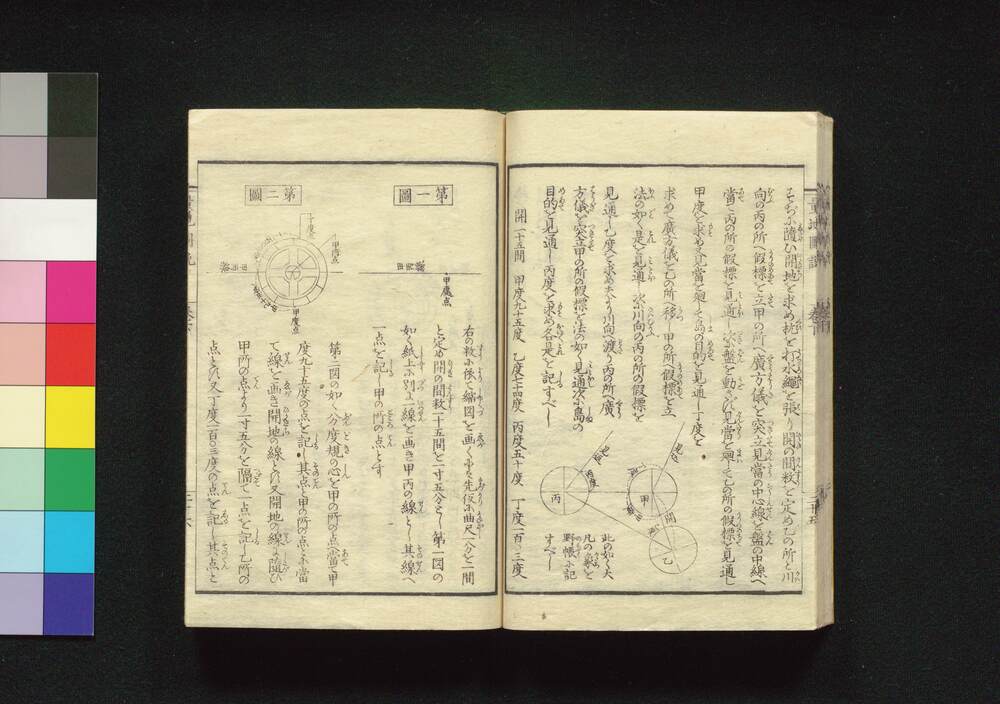 そぢに随ひ開地を求め杭を打水繩を張り開の間数を定め乙の所と川
向の丙の所へ假標を立甲の所へ廣方儀を突立見當の中心線を盤の中線へ
當て丙の所の假標を見通し次に盤を動さず見當を廻して乙の所の假標を見通し
甲度を求め又見當を廻して島の目的を見通し丁度を
求めて廣方儀を乙の所へ移し甲の所へ假標を立
法の如く是を見通し次に川向の丙の所の假標を
見通し乙度を求め夫より川向へ渡り丙の所へ廣
方儀を突立甲の所の假標を法の如く見通次に島の
目的を見通し丙度を求め各是を記すべし
開二十五間 甲度九十五度 乙度七十四度 丙度五十度 丁度一百〇三度
丙
甲
乙
開
此の如く大
凡の象を
野帳に記
すべし
第一圖
甲處点
右の数に依て縮図を画く平先仮に曲尺一分を一間
と定め開の間数二十五間を一寸五分とし第一図の
如く紙上に別に一線を画き甲丙の線とし其線へ
一点を記し甲の所の点とす
第二圖
丁度
甲度点
第二図の如く分度規の心を甲の所の点に當て甲
度九十五度の点を記し其点と甲の所の点とに當
て線を画き開地の線とし又開地の線に随ひ
甲所の点より一寸五分を隔て一点を記し乙所の
点とし又丁度一百〇三度の点を記し其点と